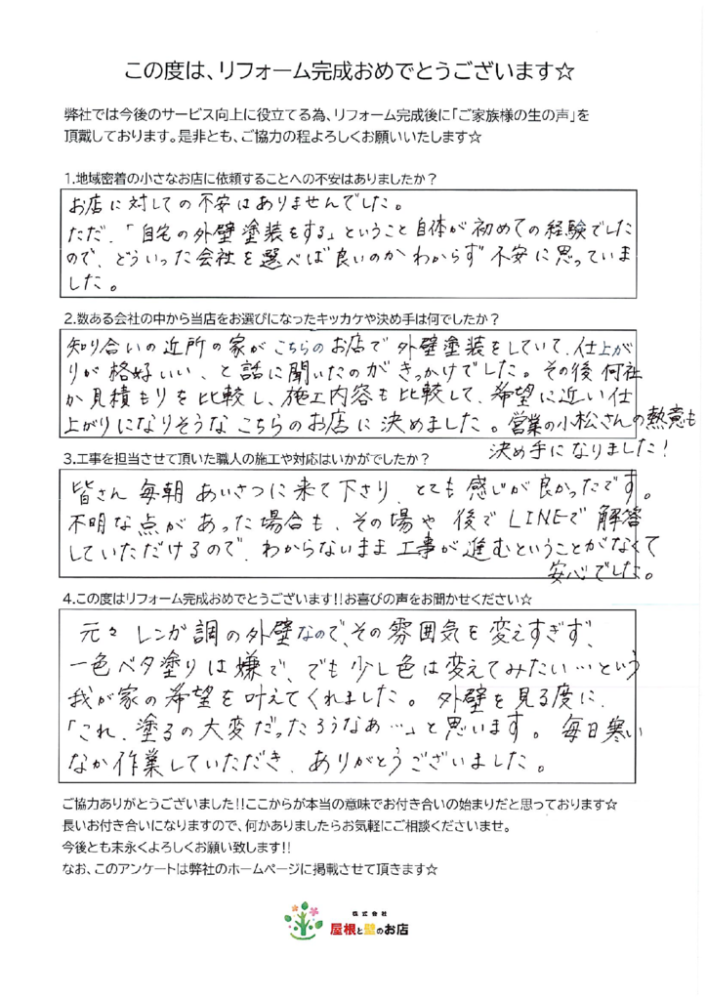 この度は、リフォーム完成おめでとうございます☆
弊社では今後のサービス向上に役立てる為、リフォーム完成後に「ご家族様の生の声」を
頂戴しております。是非とも、ご協力の程よろしくお願いいたします☆
1.地域密着の小さなお店に依頼することへの不安はありましたか？
お店に対しての不安はありませんでした。
ただ、「自宅の外壁塗装をする」ということ自体が初めての経験でした
ので、どういった会社を選べば良いのかわからず不安に思っていま
した。
2.数ある会社の中から当店をお選びになったキッカケや決め手は何でしたか？
知り合いの近所の家がこちらのお店で外壁塗装をしていて、仕上が
りが格好いい、と話に聞いたのがきっかけでした。その後何社
か見積もりを比較し、施工内容も比較して、希望に近い仕
上がりになりそうなこちらのお店に決めました。営業の小松さんの熱意も
決め手になりました！
3.工事を担当させて頂いた職人の施工や対応はいかがでしたか？
皆さん毎朝あいさつに来て下さり、とても感じが良かったです。
不明な点があった場合も、その場や後でLINEで解答
していただけるので、わからないまま工事が進むということがなくて
安心でした。
4.この度はリフォーム完成おめでとうございます!!お喜びの声をお聞かせください☆
元々レンガ調の外壁なので、その雰囲気を変えすぎず、
一色ベタ塗りは嫌で、でも少し色は変えてみたい…という
我が家の希望を叶えてくれました。外壁を見る度に、
「これ、塗るの大変だったろうなぁ…」と思います。毎日寒い
なか作業していただき、ありがとうございました。
ご協力ありがとうございました!!ここからが本当の意味でお付き合いの始まりだと思っております☆
長いお付き合いになりますので、何かありましたらお気軽にご相談くださいませ。
今後とも末永くよろしくお願い致します!!
なお、このアンケートは弊社のホームページに掲載させて頂きます☆
株式会社
屋根と壁のお店